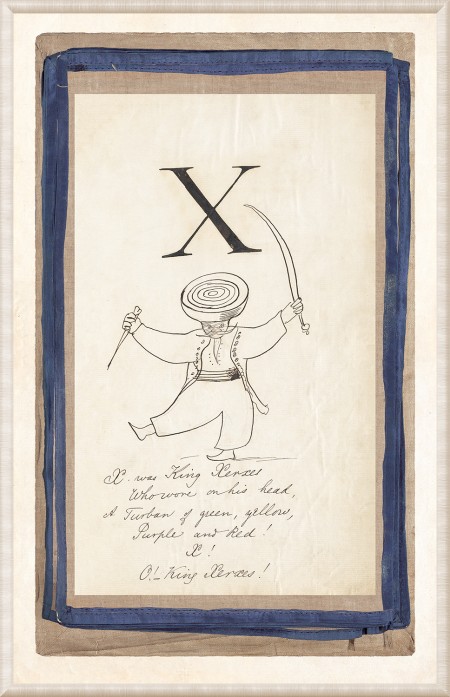 X
X. was King Xerxes
Who wore on his head,
A Turban of green, yellow,
Purple and Red!
X!
O!_ King Xerxes!